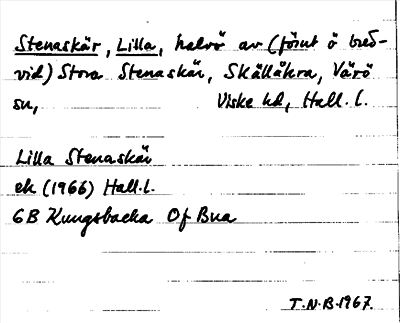 Stenaskär, Lilla, halvö av (förut ö bred-
vid) Stora Stenaskär, Skällåkra, Värö
sn, Viske hd, Hall. l.
Lilla Stenaskär
ek (1966) Hall.l.
6B Kungsbacka Of Bua
T.N.B. 1967.